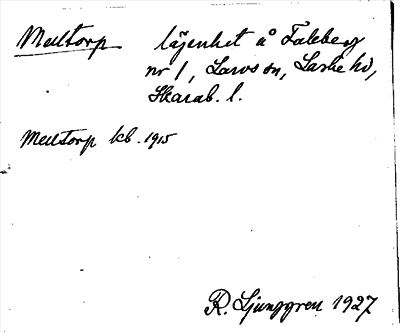 Meltorp lägenhet å Faleberg
nr 1, Larvs sn, Laske hd,
Skarab. l.
Meltorp kb. 1915
R. Ljunggren 1927